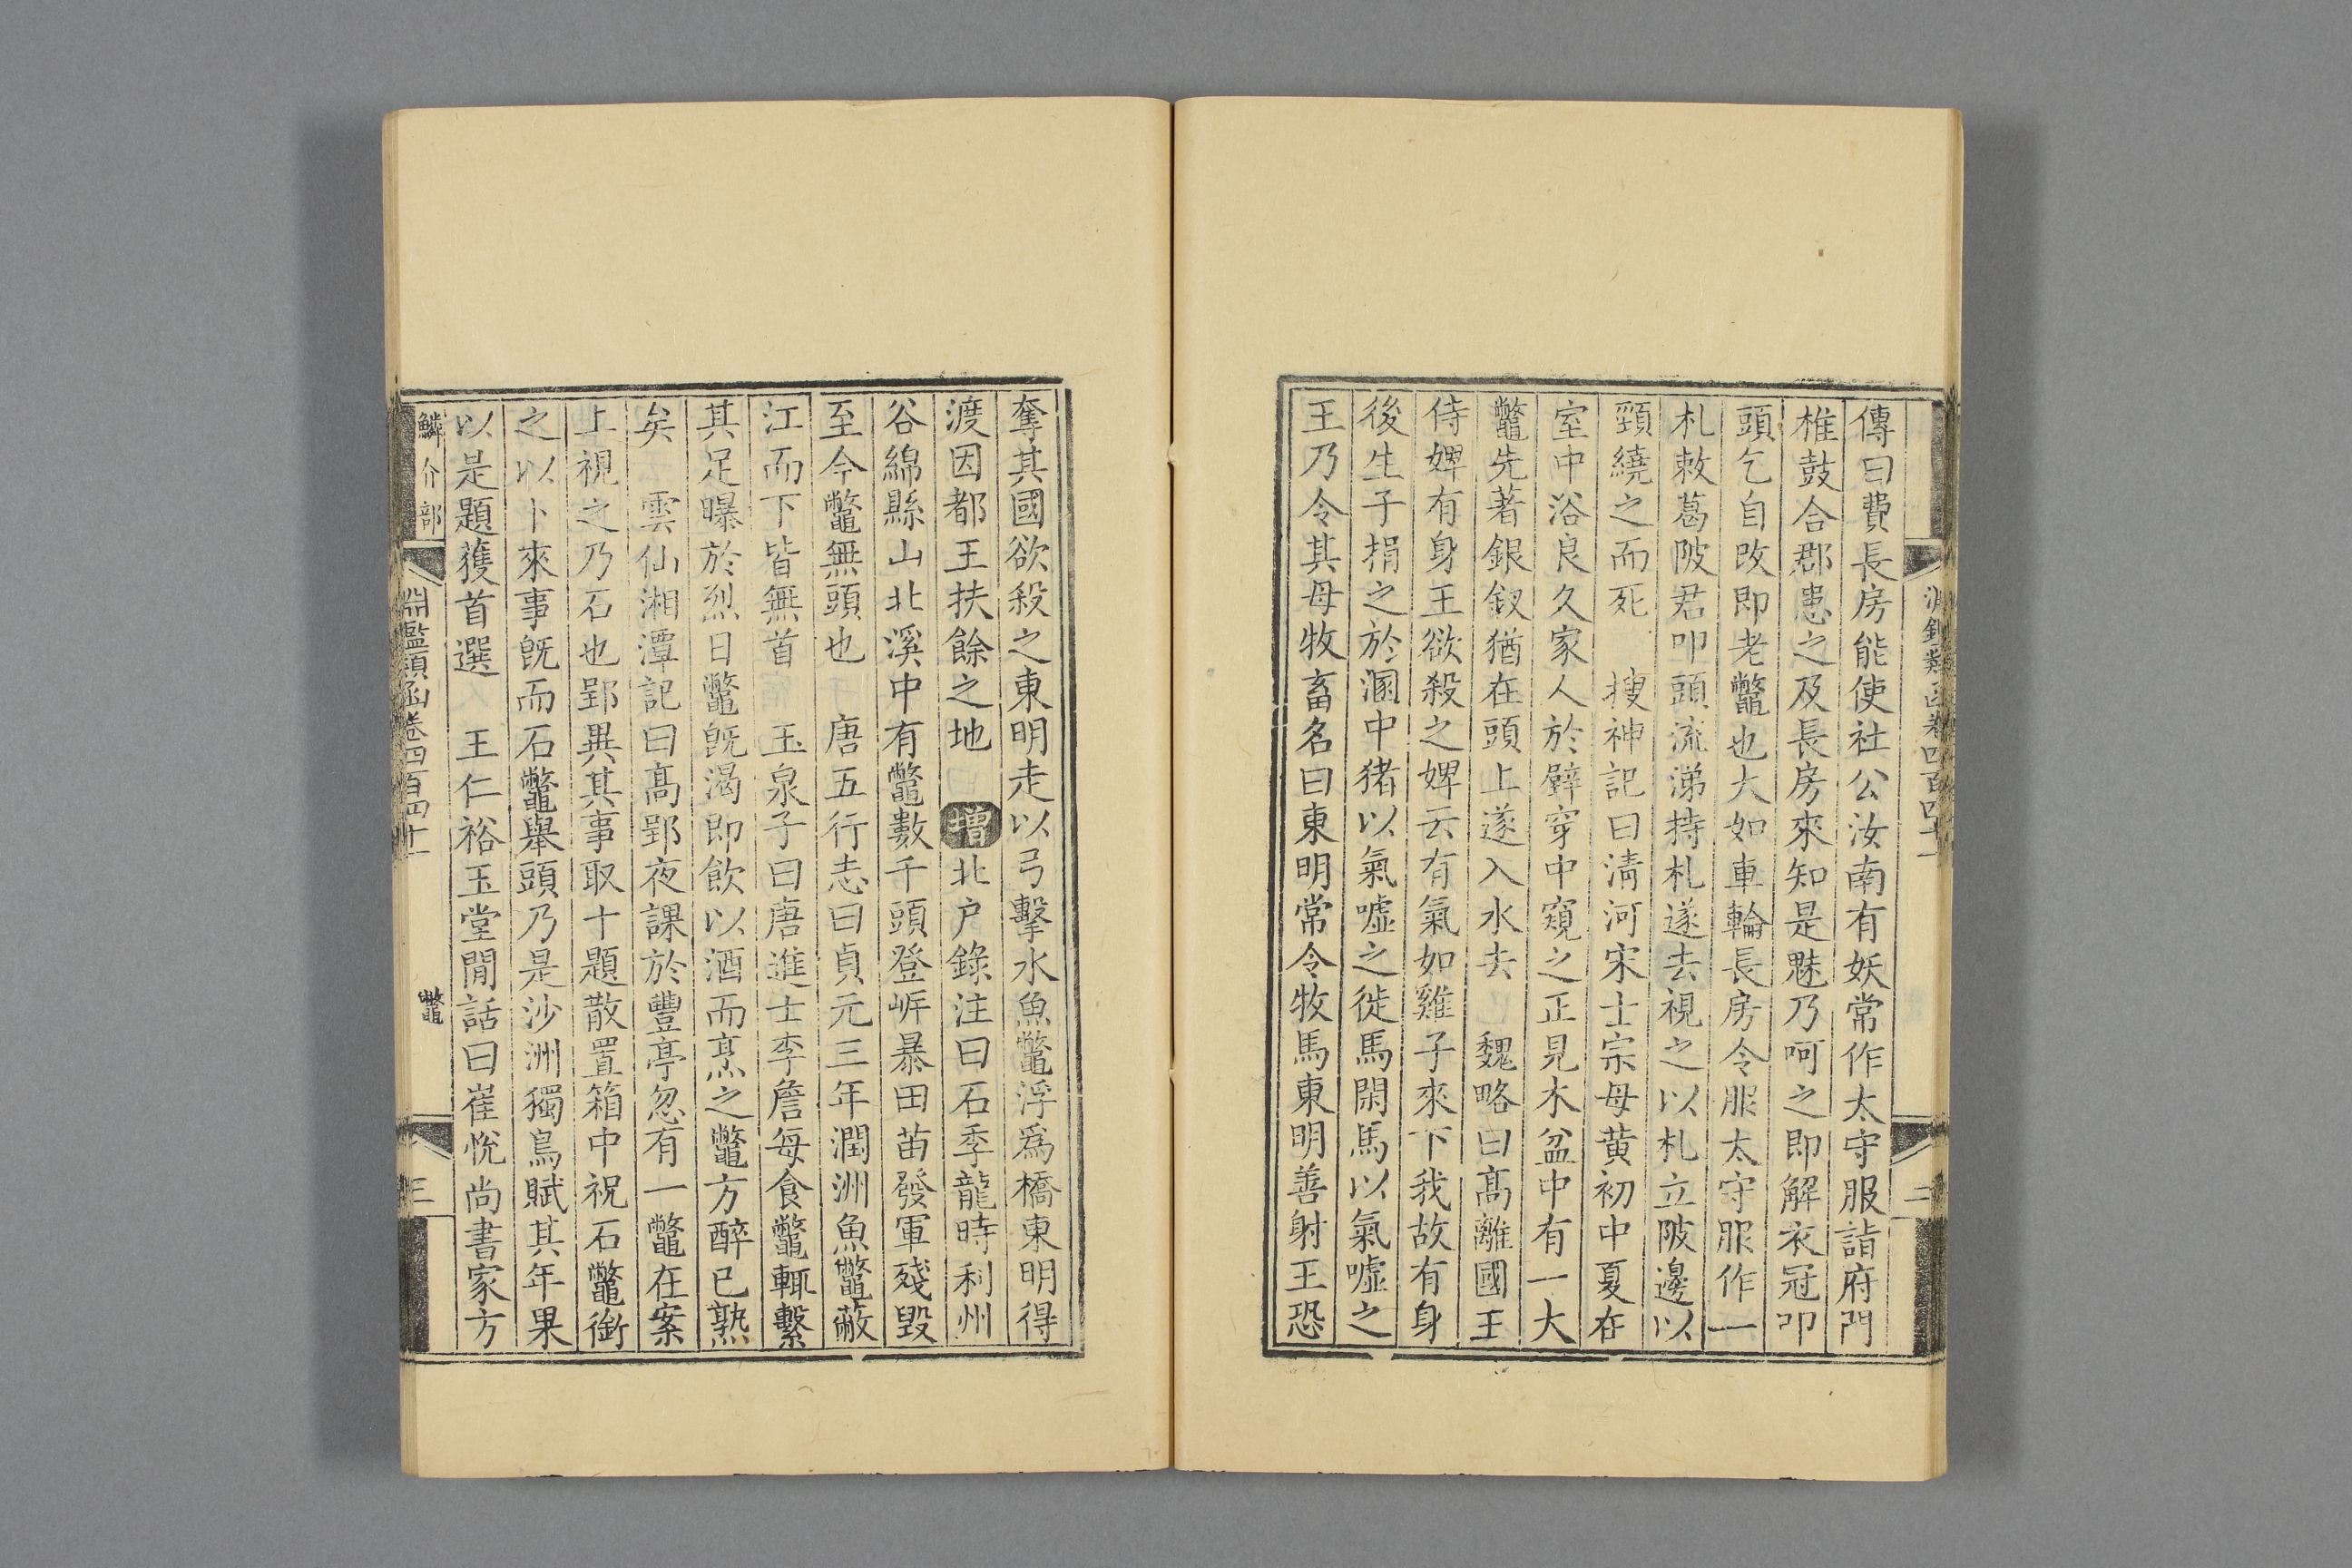 傳曰費長房能使社公汝南有妖常作太守服詣府門
椎鼓合郡患之及長房來知是魅乃呵之即解衣冠叩
頭乞自改即老鼈也大如車輪長房令服太守服作一
札敕葛陂君叩頭流涕持札遂去視之以札立陂邊以
頸繞之而死　搜神記曰淸河宋士宗母黃初中夏在
室中浴良久家人於壁穿中窺之正見木盆中有一大
鼈先著銀釵猶在頭上遂入水去　魏略曰髙離國王
侍婢有身王欲殺之婢云有氣如雞子來下我故有身
後生子捐之於溷中猪以氣噓之徙馬閑馬以氣噓之
王乃令其母牧畜名曰東明常令牧馬東明善射王恐
奪其國欲殺之東明走以弓擊水魚鼈浮爲橋東明得
渡因都王扶餘之地　增北户錄注曰石季龍時利州
谷綿縣山北溪中有鼈數千頭登岸暴田苗發軍殘毀
至今鼈無頭也　唐五行志曰貞元三年潤洲魚鼈蔽
江而下皆無首　玉泉子曰唐進士李詹每食鼈輒繫
其足曝於烈日鼈旣渴即飲以酒而烹之鼈方醉已熟
矣　雲仙湘潭記曰髙郢夜課於豐亭忽有一鼈在案
上視之乃石也郢異其事取十題散置箱中祝石鼈銜
之以卜來事旣而石鼈舉頭乃是沙洲獨鳥賦其年果
以是題獲首選　王仁裕玉堂閒話曰崔悅尚書家方
鱗介部
淵鑑類函卷四百四十一
鼈
三